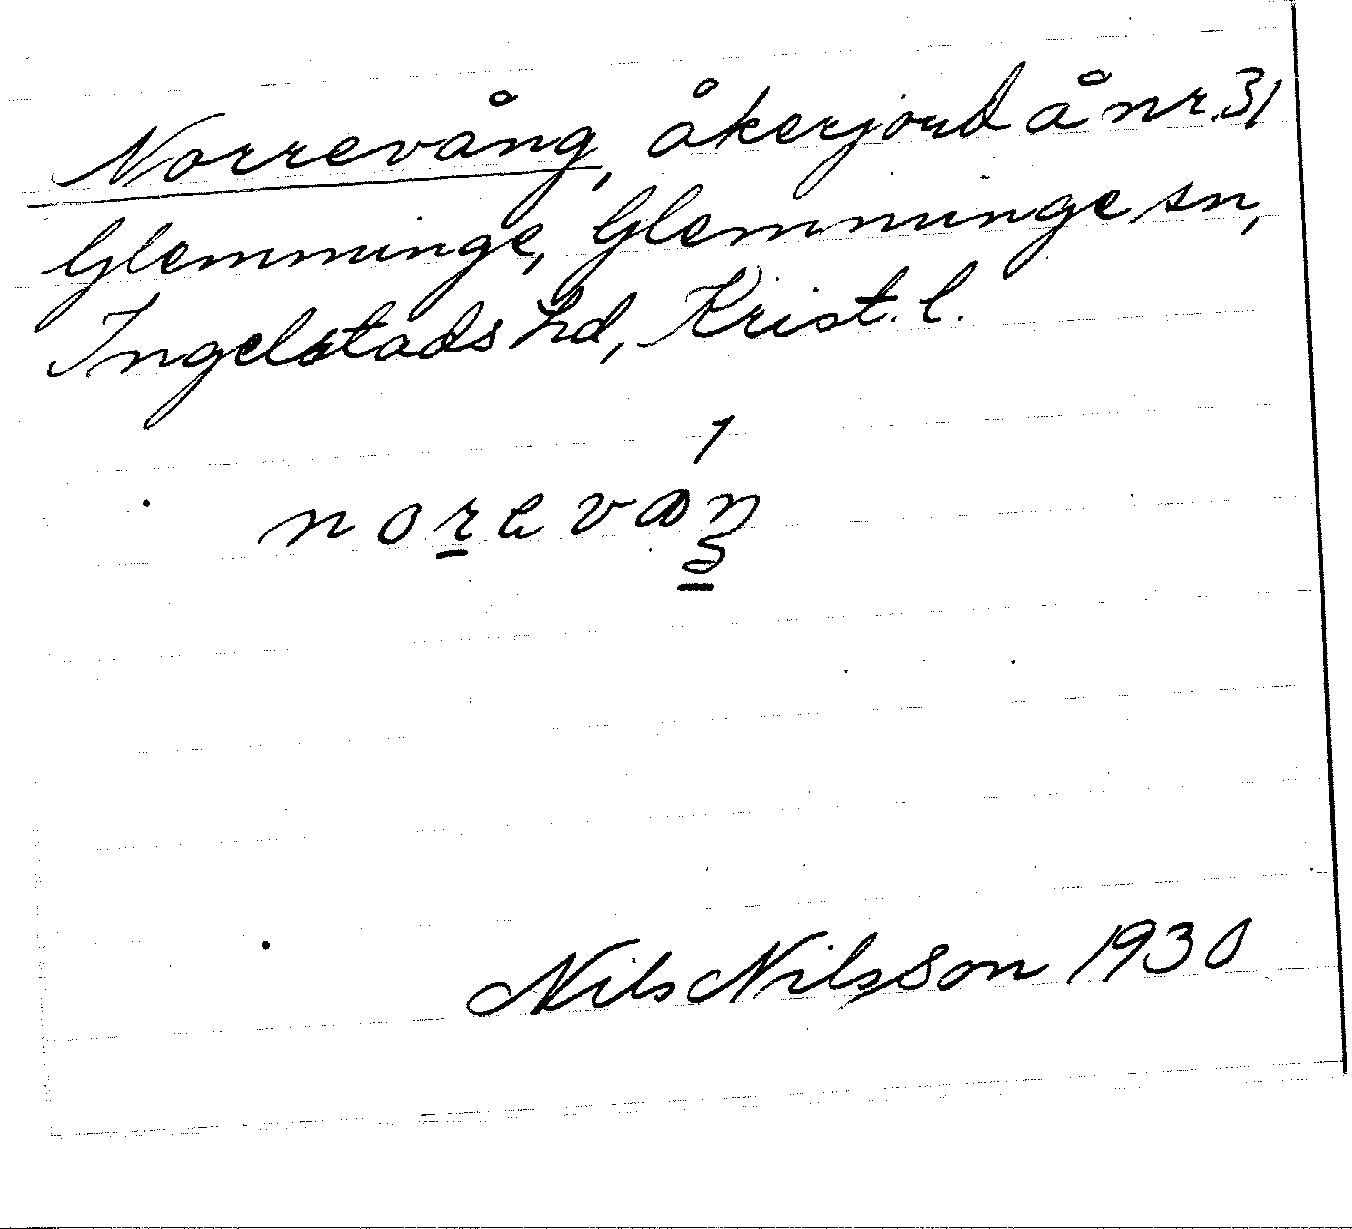 Norrevång, åkerjord å nr 31
Glemminge, Glemminge sn,
Ingelstads hd, Krist. l.
Nils Nilsson 1930